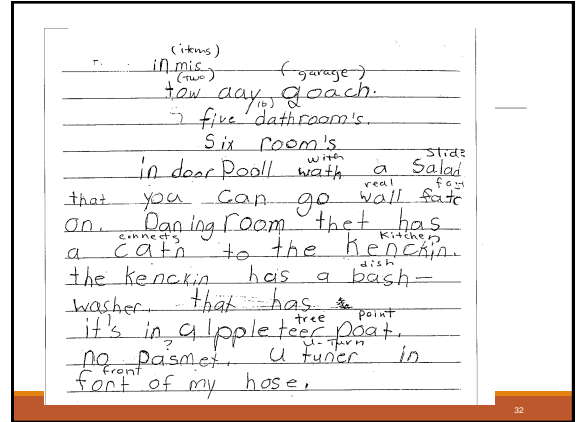 (items)
in mis
(two) (garage)
tow aay, goach.
(b)
five dathroom's.
Six room's
with Slide
in door Pooll wath a Salad
real fast
that you can go wall fatc
on. Daning room thet has
connects Kitchen
a catn to the kenckin.
dish
the kenckin has a bash-
washer. that has
tree point
it's in a lppleteer poat.
? u-turn
no pasmet. u tuner in
front
font of my hose.
32